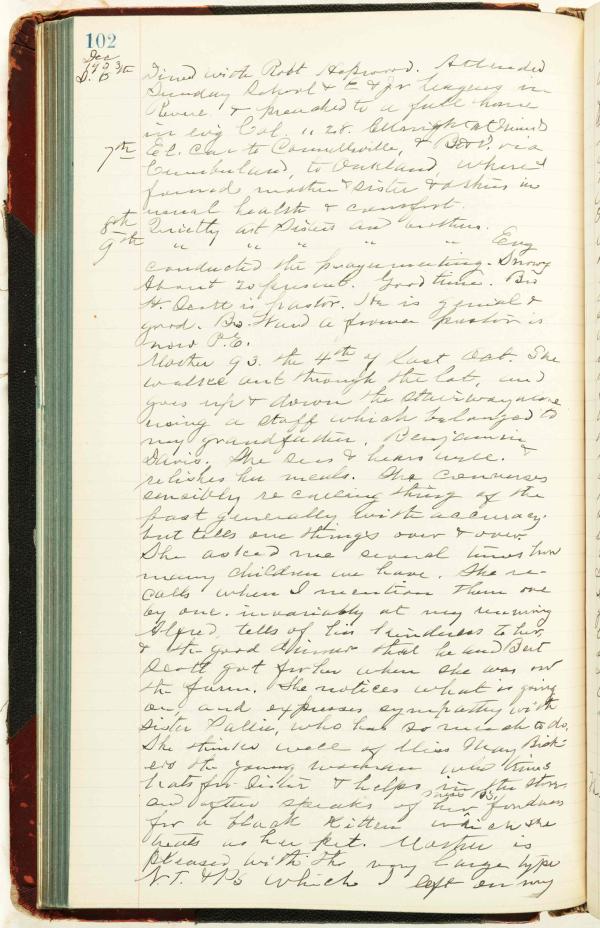 102
Dec
1903
D. 6th Dined with Robt Hopwood. Attended
Sunday School & & Jr leagues in
Revue. & preached to a full house
in evg Col. 11 28.
7th El. Car to Connellsville, & B&O, via
Cumberland, to Oakland, where I
found mother & sister & others in
usual health & comfort.
8th Quietly at Sisters and mothers.
9th " " " " " Evg
conducted the prayermeeting. Snowy
About 20 present. Good time. Bro
H. Scott is pastor. He is genial &
good. Bro Ward a former pastor is
now P.E.
Mother 93. the 4th of last Oct. She
walks out through the lot, and
goes up & down the stairway alone
using a staff which belonged to
my grandfather, Benjamin
Davis. She sees & hears well. &
relishes her meals. She converses
sensibly recalling thing of the
past generally with accuracy.
but tells one things over & over
She asked me several times how
many children we have. She re-
calls when I mention them one
by one. invariably at my naming
Alfred, tells of his kindness to her,
& the good dinner that he and Bert
Scott got for her when she was on
the farm. She notices what is going
on and expresses sympathy with
sister Sallie, who has so much to do.
She thinks well of Miss May
the young woman who trims
hats for Sister & helps in the store
and often speaks of her fondness
for a black kitten which she
treats as her pet. Mother is
pleased with the very large type
N.T. & Ps which I left on my